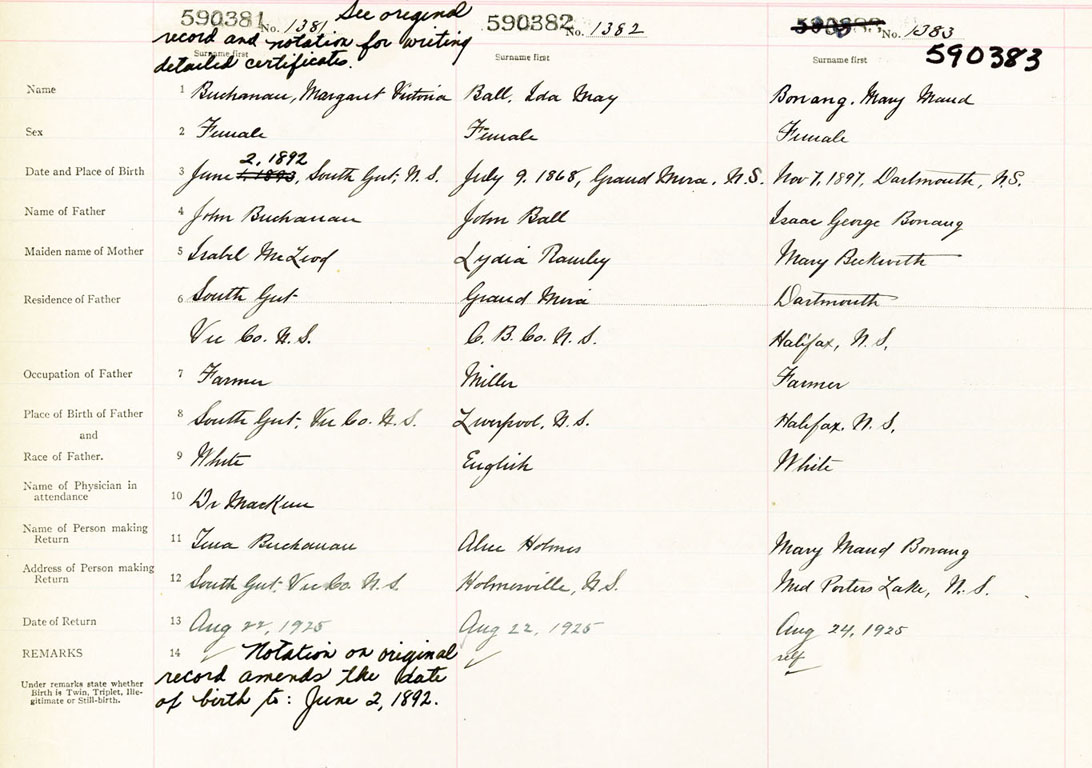 590381 No. 1381 See original
record and notation for writing
detailed certificates.
Surname first
590382 No. 1382
Surname first
No. 1383
590383
Surname first
Name 1 Buchanan, Margaret Victoria Ball, Ida May Bonang, Mary Maud
Sex 2 Female Female Female
2, 1892
Date and Place of Birth 3 June 1, 1893, South Gut, N.S. July 9, 1868, Grand Mira, N.S. Nov 7, 1897, Dartmouth, N.S.
Name of Father 4 John Buchanan John Ball Isaac George Bonang
Maiden name of Mother 5 Isabel McLeod Lydia Rawley Mary Beckwith
Residence of Father 6 South Gut Grand Mira Dartmouth
Vic Co. N.S. C. B. Co. N.S. Halifax, N.S.
Occupation of Father 7 Farmer Miller Farmer
Place of Birth of Father 8 South Gut, Vic Co. N.S. Liverpool, N.S. Halifax, N.S.
and
Race of Father. 9 White English White
Name of Physician in
attendance 10 Dr
Name of Person making
Return 11 Tena Buchanan Alice Holmes Mary Maud Bonang
Address of Person making
Return 12 South Gut, Vic Co. N.S. Holmesville, N.S. Porters Lake, N.S.
Date of Return 13 Aug 22, 1925 Aug 22, 1925 Aug 24, 1925
REMARKS 14 Notation on original self
record amends the date
of birth to: June 2, 1892.
Under remarks state whether
Birth is Twin, Triplet, Ille-
gitimate or Still-birth.